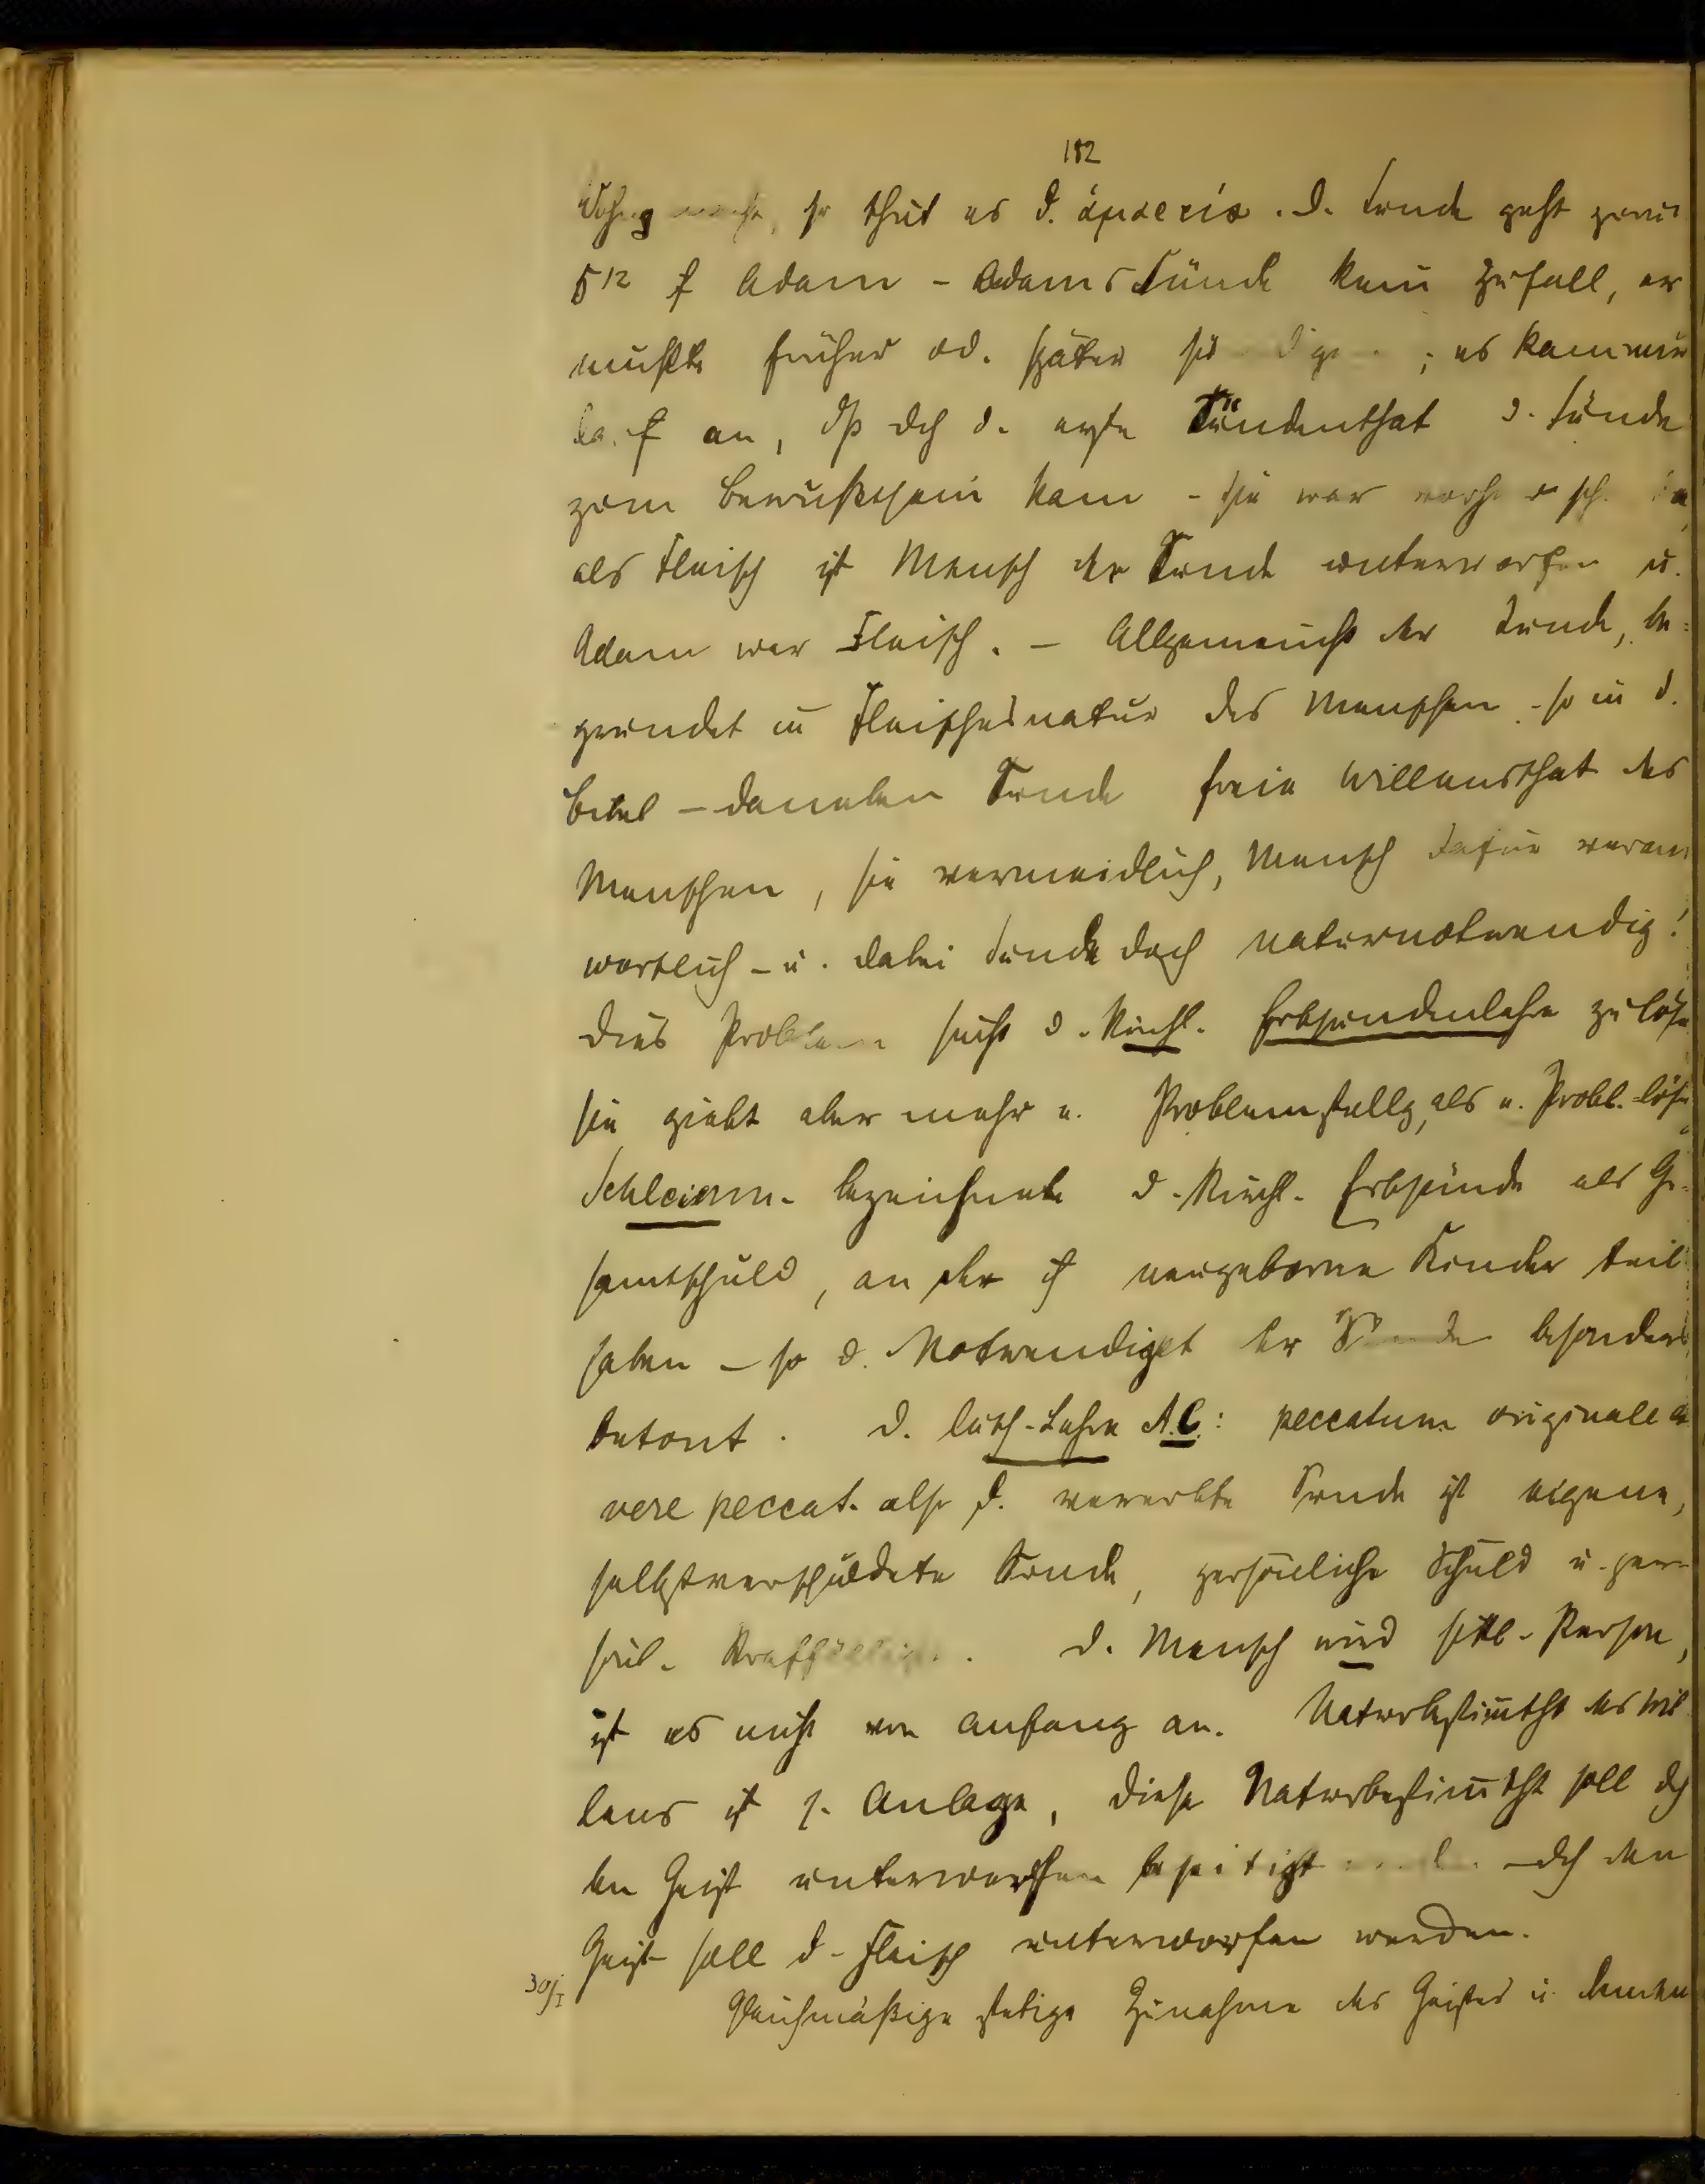 182
so thut es d. ἁμαρτία. D. Sünde geht
5 12 f Adam - Adams Sünde kein Zufall, er
mußte früher od. später ; es kam nur
an, dß dch d. erste Sündenthat d. Sünde
zum Bewußtsein kam - sie war
als Fleisch ist Mensch der Sünde unterworfen u.
Adam war Fleisch. - Allgemeinht der Sünde, be-
gründet in Fleischesnatur des Menschen - so in d.
Bibel - daneben Sünde freie Willensthat des
Menschen, sie vermeidlich, Mensch dafür veran
wortlich - u. dabei Sünde doch naturnotwendig!
Dies Problem sucht d. kirchl. Erbsündenlehre zu löse
sie giebt aber mehr e. Problemstellg, als e. Probl.-lös
Schleierm. bezeichnete d. kirchl. Erbsünde als Ge-
samtschuld, an der neugeborne Kinder teil
haben - so d. Notwendigkt der Sünde besonders
betont. D. luth. Lehre A.C.: peccatum originale
vere peccat. also d. vererbte Sünde ist eigene,
selbstverschuldete Sünde, persönliche Schuld u. per-
sönl. D. Mensch wird sittl. Person,
ist es nicht von Anfang an. Naturbestim̄tht des Wil
lens ist s. Anlage, diese Naturbestim̄tht soll dch
den Geist unterworfen beseitigt - dch den
Geist soll d. Fleisch unterworfen werden.
30/I
Gleichmäßige stetige Zunahme des Geistes u.